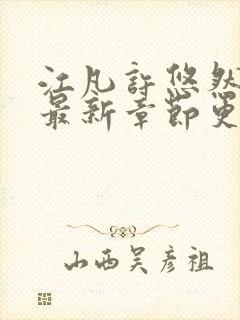 江凡许悠然
最新章节更
山西吴彦祖